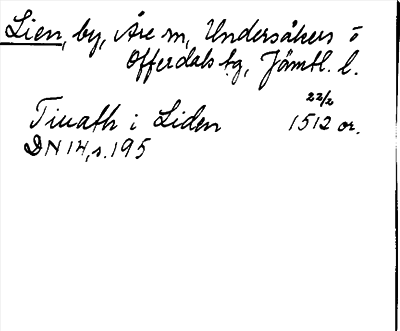 Lien, by, Åre sn, Undersåkers o
Offerdals tg, Jämtl. l.
22/2
Tiuath i Liden 1512 or.
DN 14, s. 195